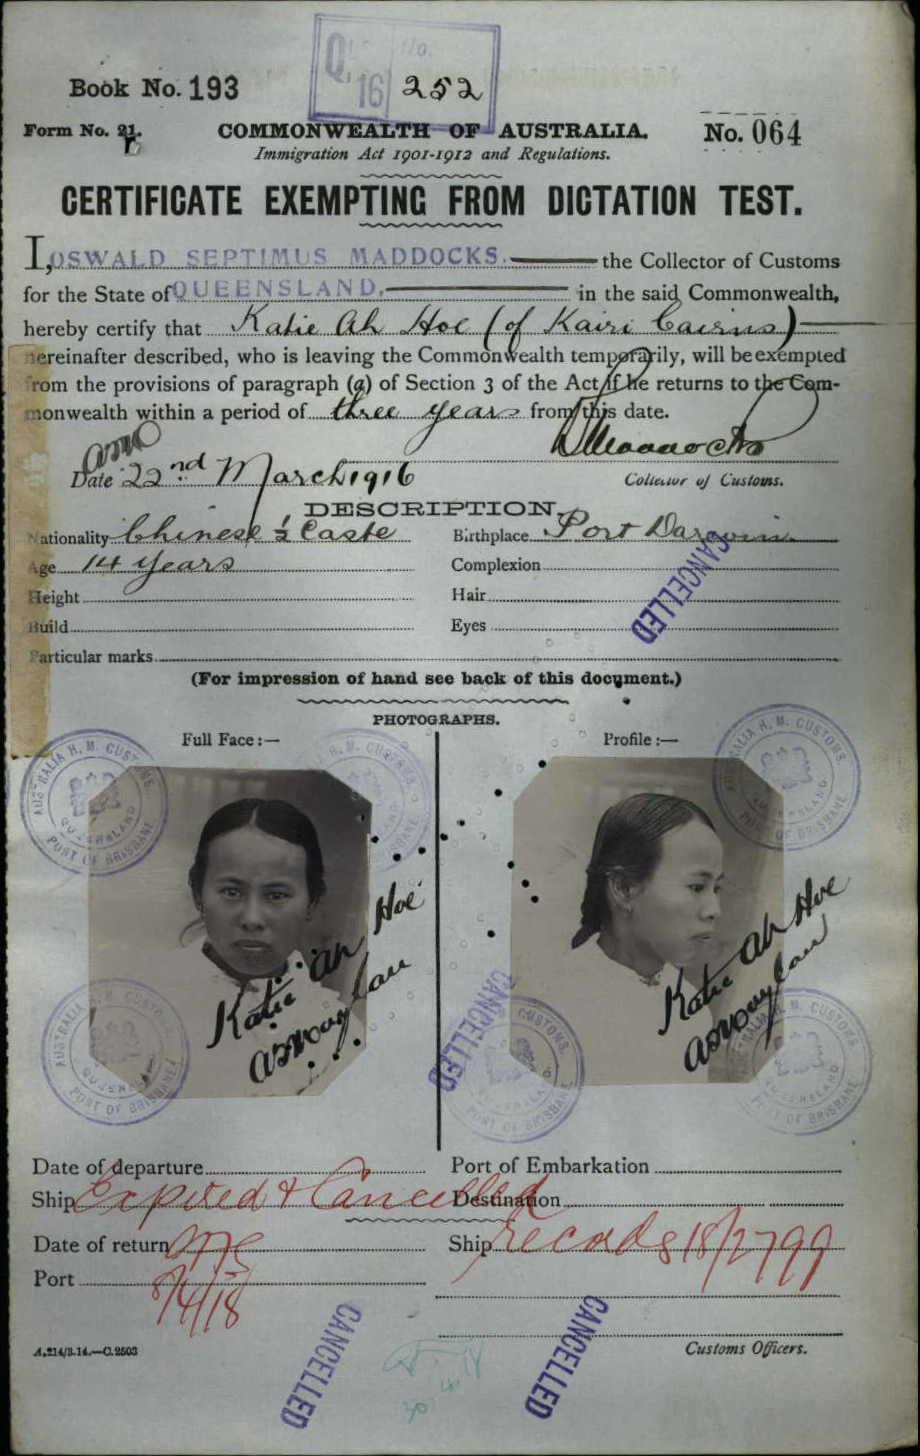 Book No. 193
Q. 16 252
Form No. 21.
COMMONWEALTH OF AUSTRALIA.
No. 064
Immigration Act 1901-1912 and Regulations.
CERTIFICATE EXEMPTING FROM DICTATION TEST.
I, OSWALD SEPTIMUS MADDOCKS. the Collector of Customs
for the State of QUEENSLAND. in the said Commonwealth,
hereby certify that Katie Ah Hoe (of Kairi Cairns)
hereinafter described, who is leaving the Commonwealth temporarily, will be exempted
from the provisions of paragraph (a) of Section 3 of the Act if he returns to the Com-
monwealth within a period of three years from this date.
Date 22nd March 1916
Collector of Customs.
DESCRIPTION.
Nationality Chinese ½ Caste Birthplace Port Darwin
Age 14 years Complexion
Height Hair
Build Eyes
Particular marks
CANCELLED
(For impression of hand see back of this document.)
PHOTOGRAPHS.
Full Face:— Profile:—
AUSTRALIA H. M. CUSTOMS. QUEENSLAND PORT OF BRISBANE
AUSTRALIA H. M. CUSTOMS. QUEENSLAND PORT OF BRISBANE
AUSTRALIA H. M. CUSTOMS. QUEENSLAND PORT OF BRISBANE
Katie Ah Hoe
Katie Ah Hoe
AUSTRALIA H. M. CUSTOMS. QUEENSLAND PORT OF BRISBANE
CANCELLED
CUSTOMS. QUEENSLAND PORT OF BRISBANE
AUSTRALIA H. M. CUSTOMS. QUEENSLAND PORT OF BRISBANE
Date of departure Port of Embarkation
Ship Destination
Expired & Cancelled
Date of return Ship
records 18/2799
Port
8/4/18
CANCELLED
CANCELLED
A.214/3.14.—C.2503
Customs Officers.